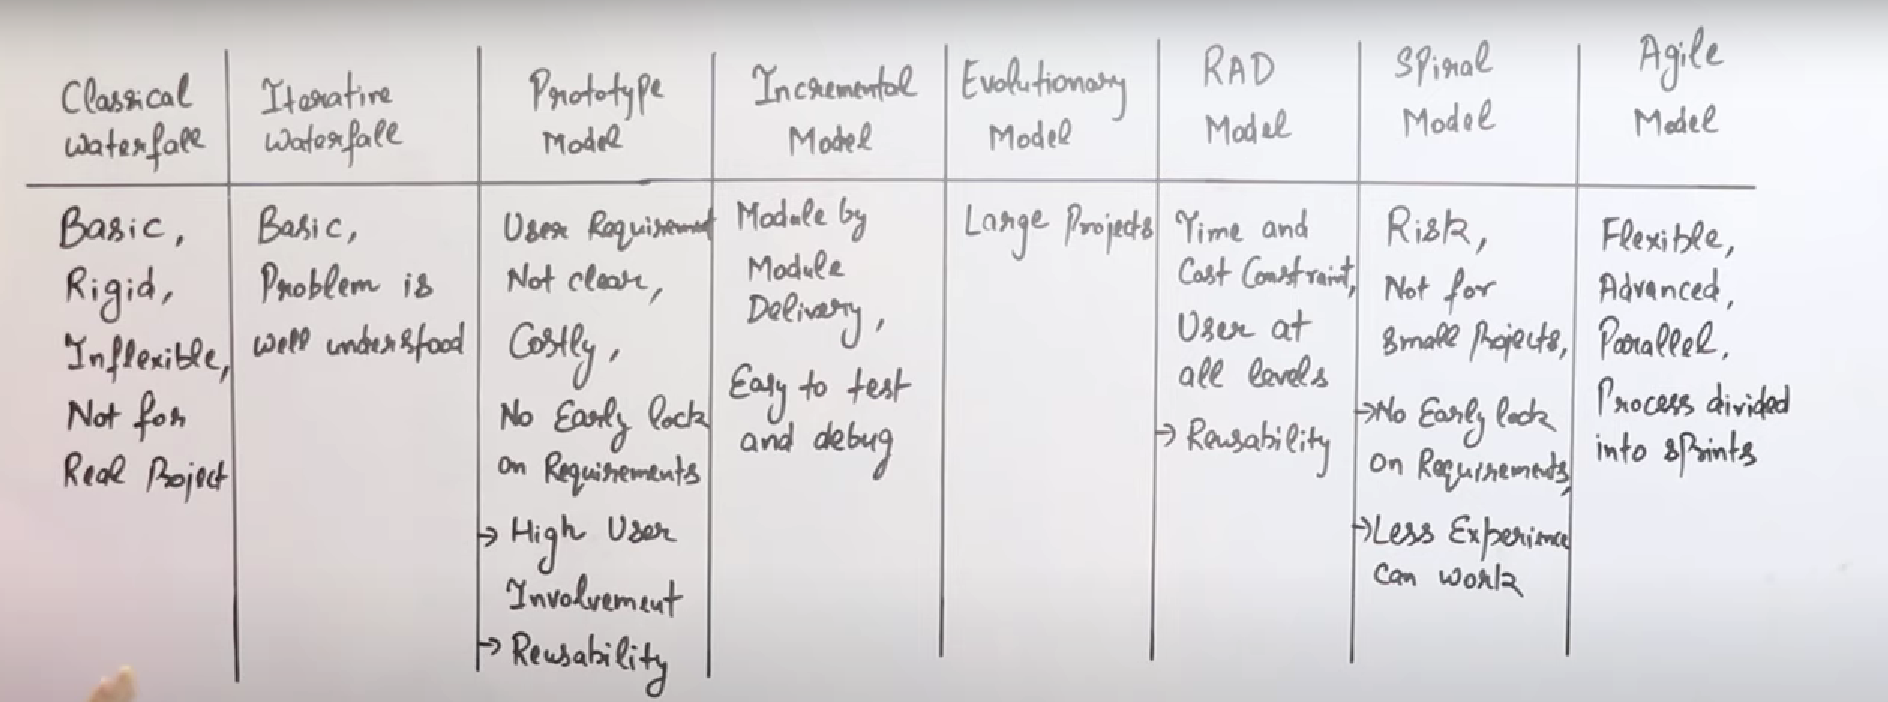 Classical
Waterfall
Iterative
Waterfall
Prototype
Model
Incremental
Model
Evolutionary
Model
RAD
Model
Spiral
Model
Agile
Model
Basic,
Rigid,
Inflexible,
Not for
Real Project
Basic,
Problem is
well understood
User Requirement
Not clear,
Costly,
No Early lock
on Requirements
→ High User
Involvement
→ Reusability
Module by
Module
Delivery,
Easy to test
and debug
Large Projects
Time and
Cost Constraint,
User at
all levels
→ Reusability
Risk,
Not for
small Projects,
→No Early lock
on Requirements,
→Less Experience
can work
Flexible,
Advanced,
Parallel,
Process divided
into sprints